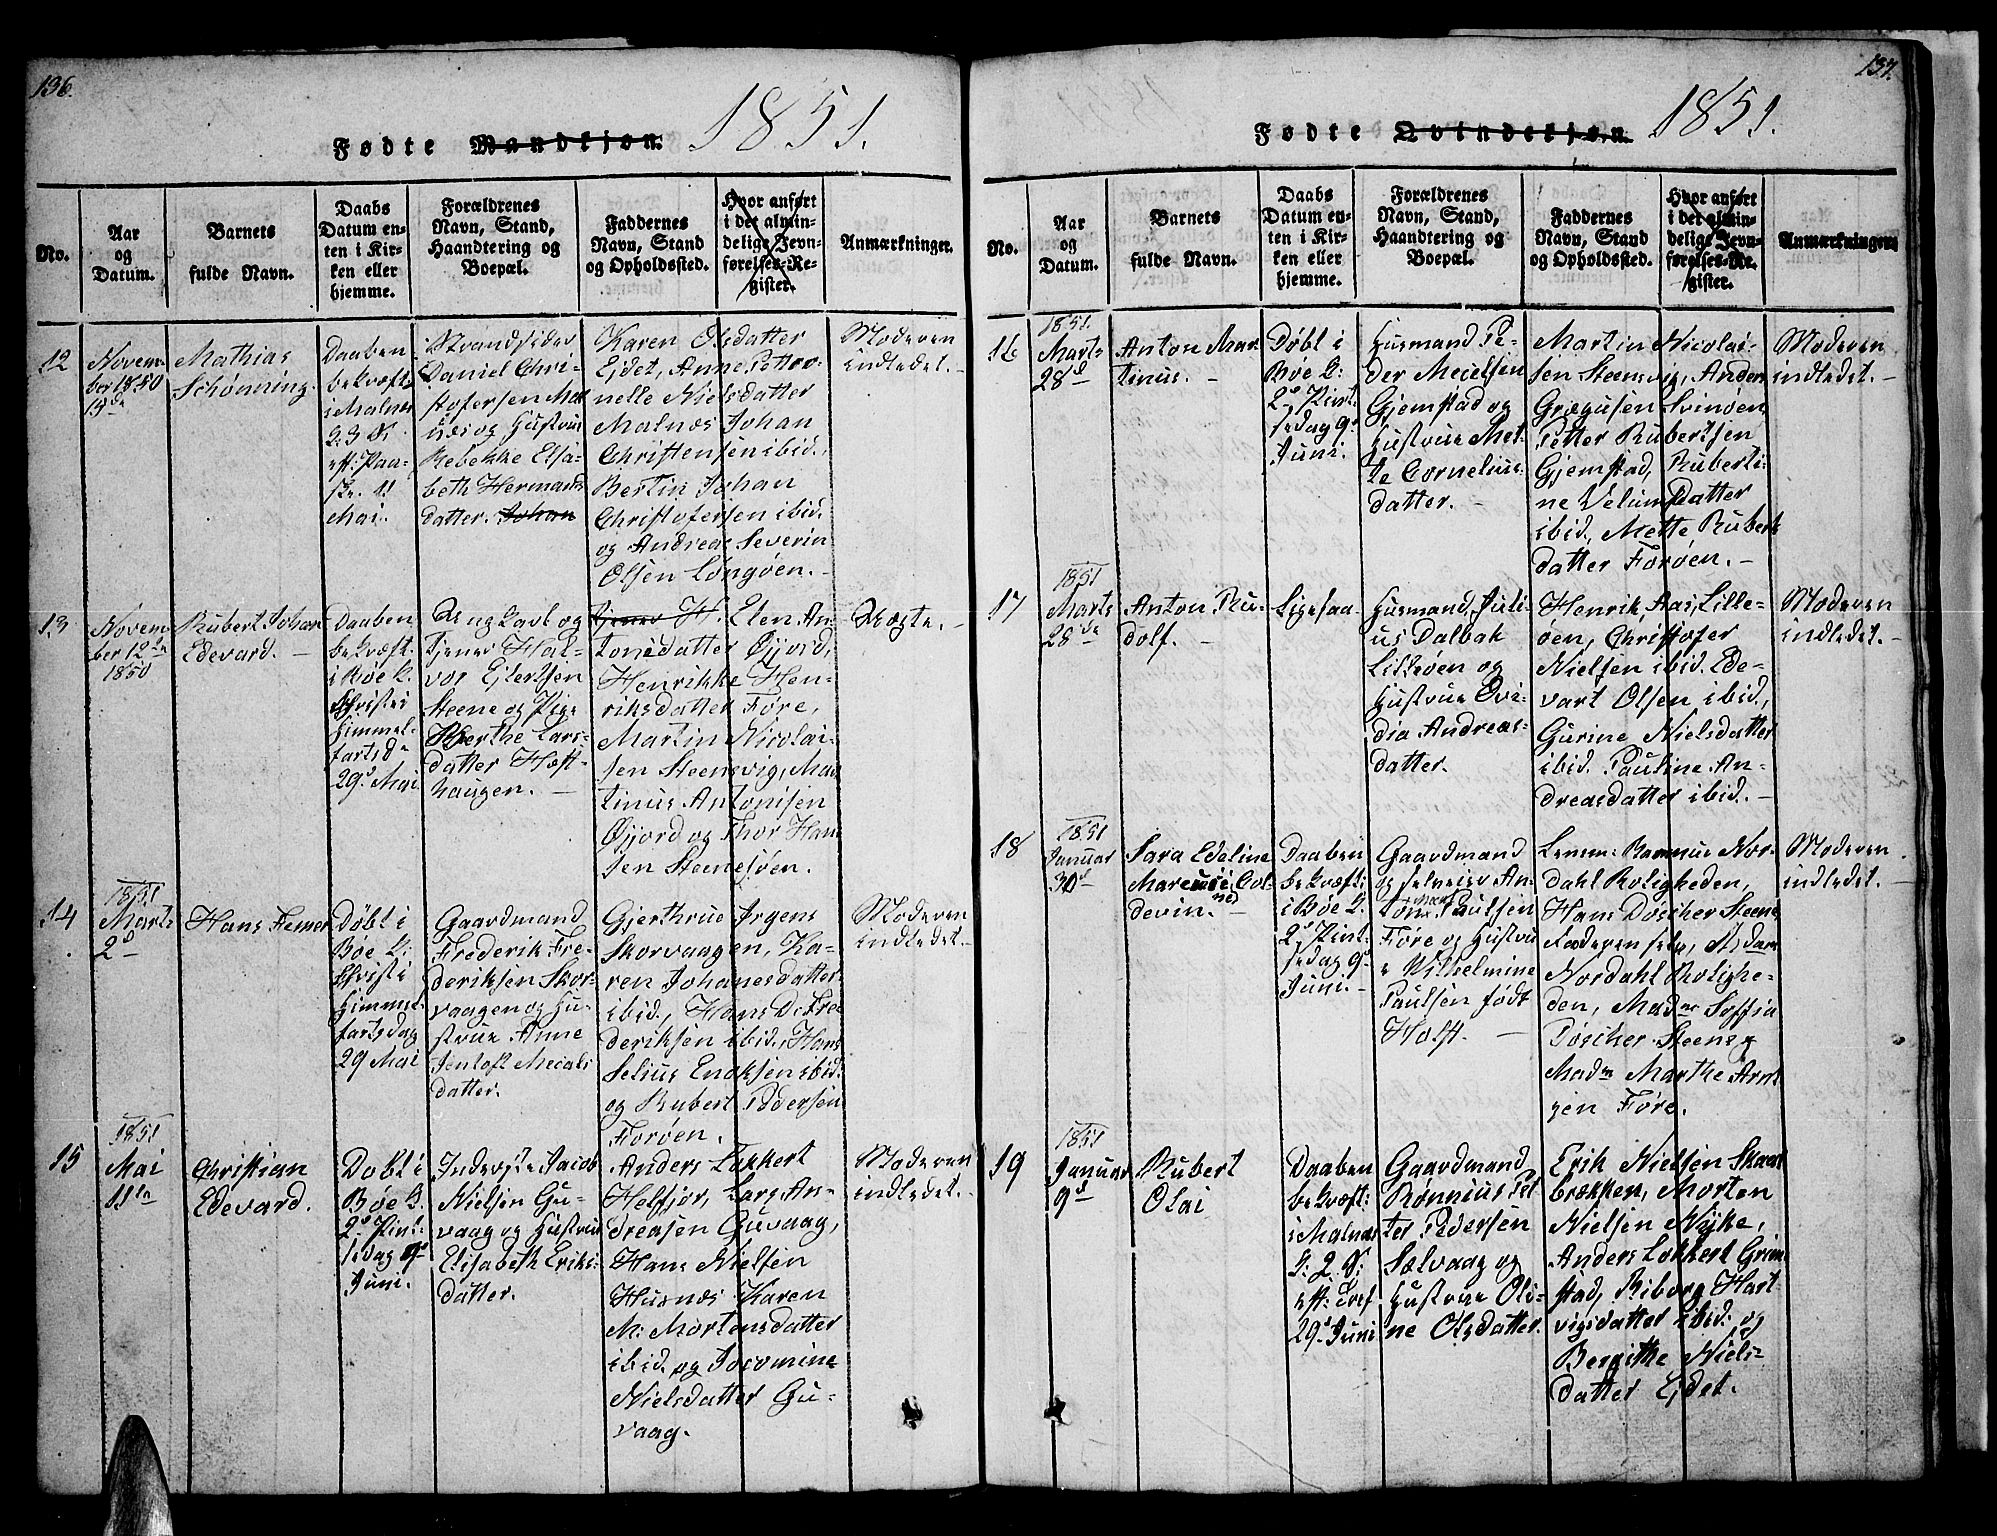 136.
Fødte Mandkjøn. 1851.
No.
Aar
og
Datum.
Barnets
fulde Navn.
Daabs
Datum en-
ten i Kir-
ken eller
hjemme.
Forældrenes
Navn, Stand,
Haandtering og
Boepæl.
Faddernes
Navn, Stand
og Opholdssted.
Hvor anført
i det almin-
delige Jevn-
førelses-Re-
gister.
Anmærkninger.
12
Novem
ber 1850
13de
Mathias
Schønning.
Daaben
bekræft
i Malnæs
2: 3 S.
eft: Paa-
ske 11
Mai.
Strandsider
Daniel Chri-
stofersen Mal
næs og Hustrue
Rebekke Elsa-
beth Hermans
datter. Johan
Karen Olsdatter
Ejdet, Anne Petro-
nelle Nielsdatter
Malnæs Johan
Christensen ibid.,
Bertin Johan
Christofersen ibid.
og Andreas Severin
Olsen Longøen. -
Moderen
indledet. -
13
Novem
ber 12te
1850
Rubert Johan
Edevard. -
Daaben
bekræft.
i Bøe K.
Christi
Himmel-
fartsd
29d Mai
Ungkarl og
Tjener Hal-
vor Ejlertsen
Steene og Pige
Berthe Lars-
datter Hæft-
haugen. -
Tjener H. Elen An-
tonsdatter Øjjord,
Henrikke Hen-
riksdatter Føre,
Martin Nicolai-
sen Steensvig, Mar
tinus Antonisen
Øjjord og Thor Han
sen Steenesøen.
Uægte. -
14
1851
Marts
2d
Hans Femer
Døbt i
Bøe K.
Christi
Himmel-
fartsdag
29 Mai
Gaardmand
Frederik Fre-
deriksen Skor-
vaagen og Hu-
strue Anne
Jentoft Mecals
datter.
Gjerthrue Jrgens
Skorvaagen, Ka-
ren Johanesdatter
ibid., Hans D. Fre
deriksen ibid., Hans
Selius Enoksen ibid.
og Rubert Pedersen
Forøen.
Moderen
indledet. -
15
1851
Mai
11te
Christian
Edevard.
Døbt i
Bøe K.
2d Pint-
sedag 9d
Juni.
Inderste Jacob
Nielsen Gu-
vaag og Hustrue
Elisabeth Eriks-
datter.
Anders Lokkert
Helfjor, Lars An-
dreasen Guvaag,
Hans Nielsen
Husnæs Karen
M: Mortensdatter
ibid. og Joromine
Nielsdatter Gu-
vaag.
Moderen
indledet. -
137.
Fødte Qvindekjøn. 1851.
No.
Aar
og
Datum.
Barnets
fulde Navn.
Daabs
Datum en-
ten i Kir-
ken eller
hjemme.
Forældrenes
Navn, Stand,
Haandtering og
Boepæl.
Faddernes
Navn, Stand
og Opholdssted.
Hvor anført
i det almin-
delige Jevn-
førelses-Re-
gister.
Anmærkninger
16
1851.
Marts
28d
Anton Mar
tinus. -
Døbt i
Bøe K:
2d Pint-
sedag 9d
Juni.
Husmand Pe-
der Meielsen
Gjemstad og
Hustrue Met-
te Cornelius-
datter. -
Martin Nicolai-
sen Steensvig, Anders
Grægusen Svinøen,
Petter Rubertsen
Gjemstad, Ruberti-
ne Velumsdatter
ibid, Mette Ruberts
datter Forøen. -
Moderen
indledet. -
17
1851
Marts
28de
Anton Ru-
dolf. -
Ligesaa
Husmand, Juli-
us Dalbak
Lilleøen og
Hustrue Ovi-
dia Andreas-
datter.
Henrik Aas, Lille-
øen, Christofer
Nielsen ibid. Ede-
vart Olsen ibid,
Gurine Nielsdatter
ibid. Pauline An-
dreasdatter ibid. -
Moderen
indledet. -
18
1851
Januar
30d
Sara Edeline
Marensine Col
devin. -
Daaben
bekræft:
i Bøe K.
2d Pint-
sedag 9d
Juni. -
Gaardmand
og selveier An-
tone Paulsen
Føre og Hustru
e Wilhelmine
Paulsen født
Holst. -
Lensm: Rasmus Nor-
dahl Roligheden,
Hans Døscher Steene
Faderen selv, Madam
Nordahl Rolighe-
den, Madm Soffia
Døscher Steene og
Madm Marthe Arnt
zen Føre.
Moderen
indledet. -
19
1851
Januar
9d
Rubert
Olai
Daaben
bekræft:
i Malnæs
K. 2. S:
eft: Tref
29d Juni
Gaardmand
Rønnius Pet
ter Pedersen
Sælvaag og
Hustrue Oli-
ne Olsdatter.
Erik Nielsen Skaar
brækken, Morten
Nielsen Nÿke,
Anders Lokkert Grim
stad, Riborg Hart-
vigsdatter ibid: og
Bergithe Niels-
datter Ejdet.